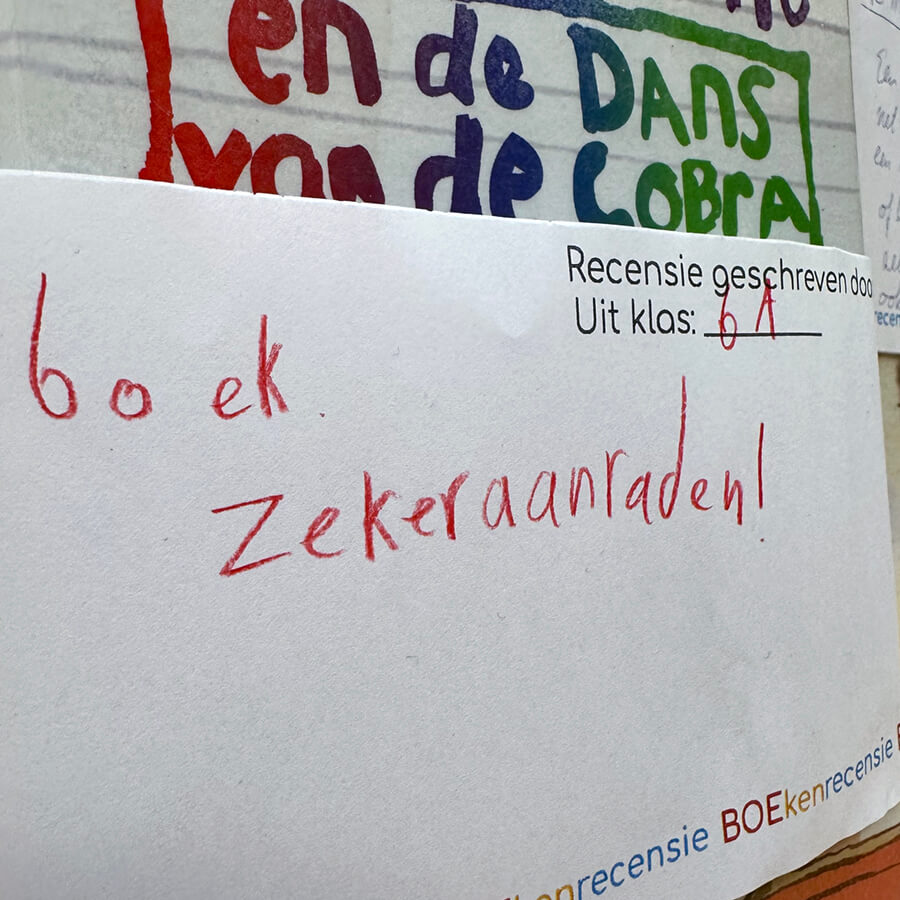 en de Dans
van de Cobra
Recensie geschreven doo
Uit klas: 6A
boek
Zeker aanraden!
recensie BOEkenrecensie